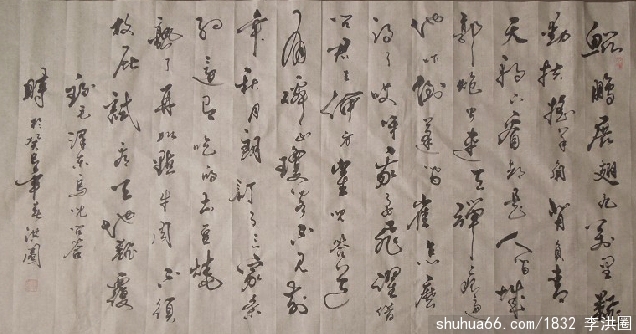 鲲鹏展翅九万里翻
动扶摇羊角背负青
天朝下看都是人间城
郭炮火连天弹痕遍
地吓倒蓬间雀怎么
得了哎呀我要飞跃借
问君去何方雀儿答道
有仙山琼阁不见前
年秋月朗订了三家条
约还有吃的土豆烧
熟了再加牛肉不须
放屁试看天地翻覆
毛泽东鸟儿问答
時於癸巳年春洪圈
shuhua66.com/1832 李洪圈